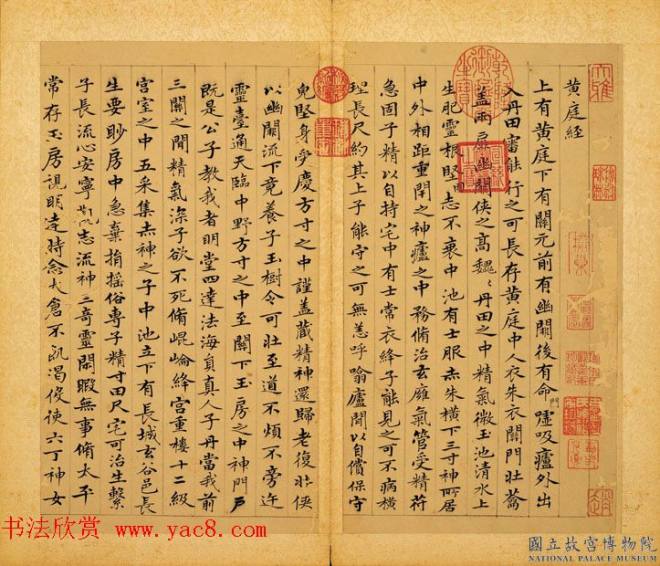 黃庭經
上有黃庭下有關元前有幽關後有命門噓吸廬外出
入丹田審能行之可長存黃庭中人衣朱衣關門壯蘥
蓋兩扉幽關俠之高魏〻丹田之中精氣微玉池清水上
生肥靈根堅志不衰中池有士服赤朱橫下三寸神所居
中外相距重閉之神廬之中務脩治玄𤸰氣管受精符
急固子精以自持宅中有士常衣絳子能見之可不病橫
理長尺約其上子能守之可無恙呼噏廬間以自償保守
完堅身受慶方寸之中謹蓋藏精神還歸老復壯俠
以幽關流下竟養子玉樹令可壯至道不煩不旁迕
靈臺通天臨中野方寸之中至關下玉房之中神門戶
既是公子教我者明堂四達法海員真人子丹當我前
三關之間精氣深子欲不死脩崐崘絳宮重樓十二級
宮室之中五采集赤神之子中池立下有長城玄谷邑長
生要眇房中急棄捐搖俗專子精寸田尺宅可治生繫
子長流心安寧志流神三奇靈閑暇無事脩太平
常存玉房視明達時念大倉不飢渴役使六丁神女
书法欣赏 www.yac8.com
國立故宮博物院
NATIONAL PALACE MUSEUM